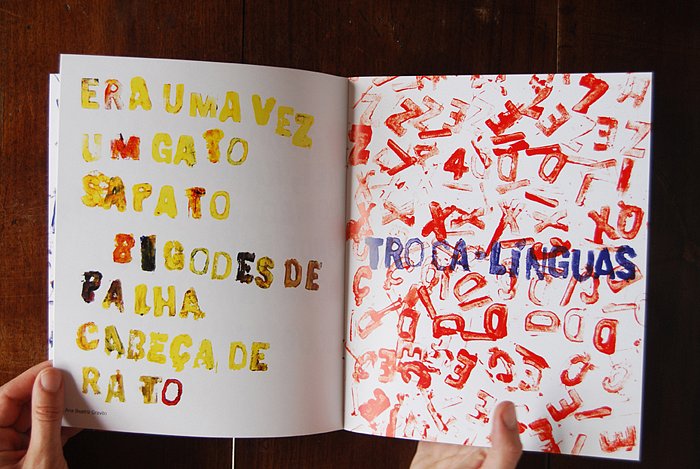 ERA UMA VEZ
UM GATO
SAPATO
BIGODES DE
PALHA
CABEÇA DE
RATO
TROCA-LÍNGUAS